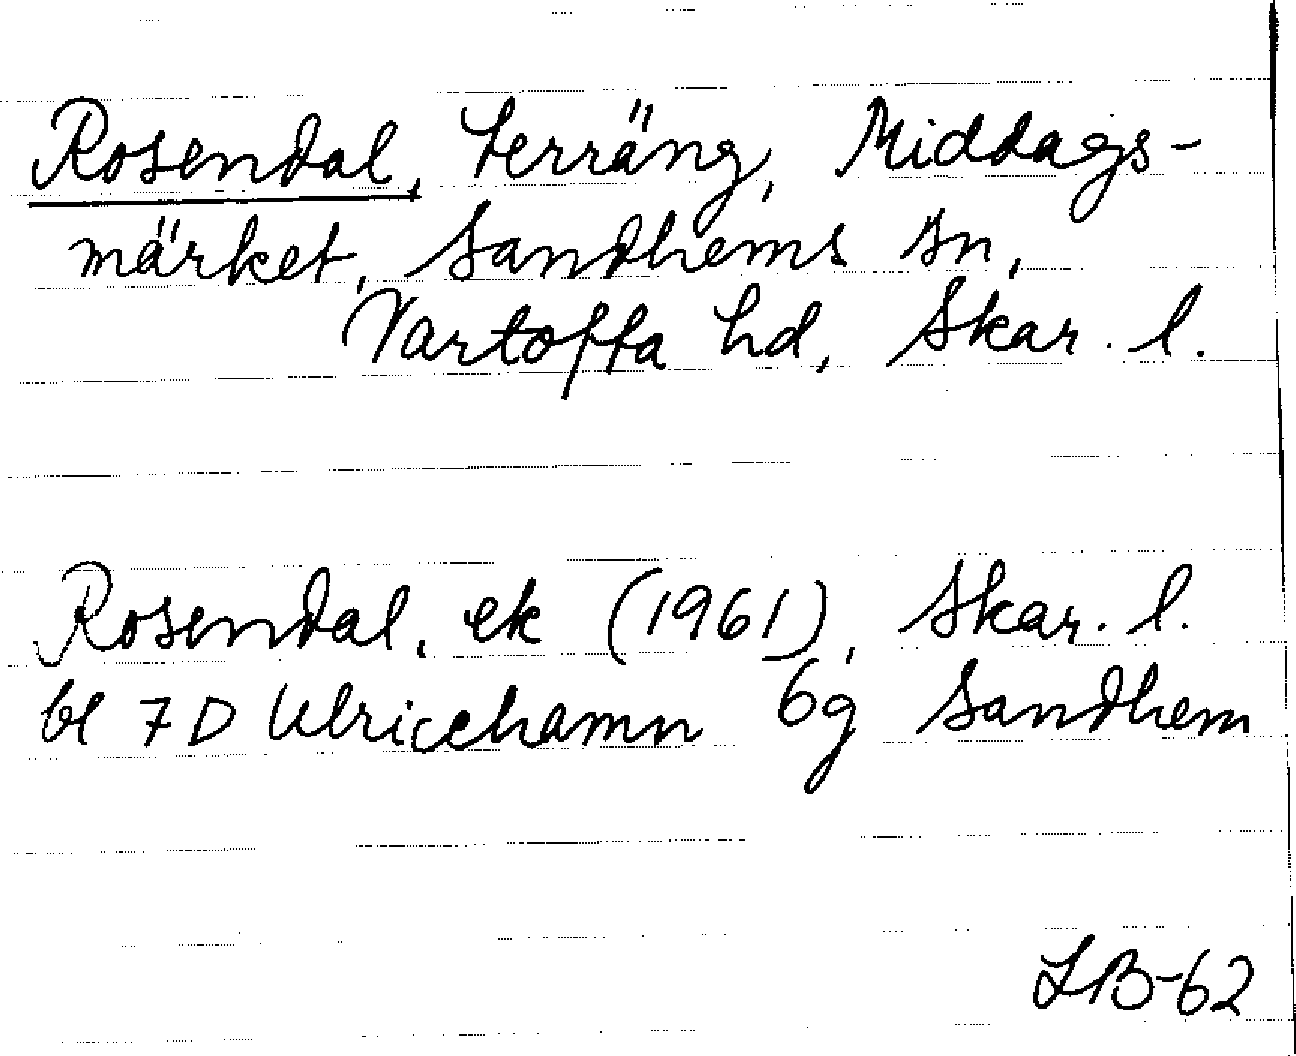 Rosendal, terräng, Middags-
märket, Sandhems sn,
Vartofta hd, Skar. l.
Rosendal, ek (1961), Skar. l.
bl 7D Ulricehamn 6g Sandhem
LB-62